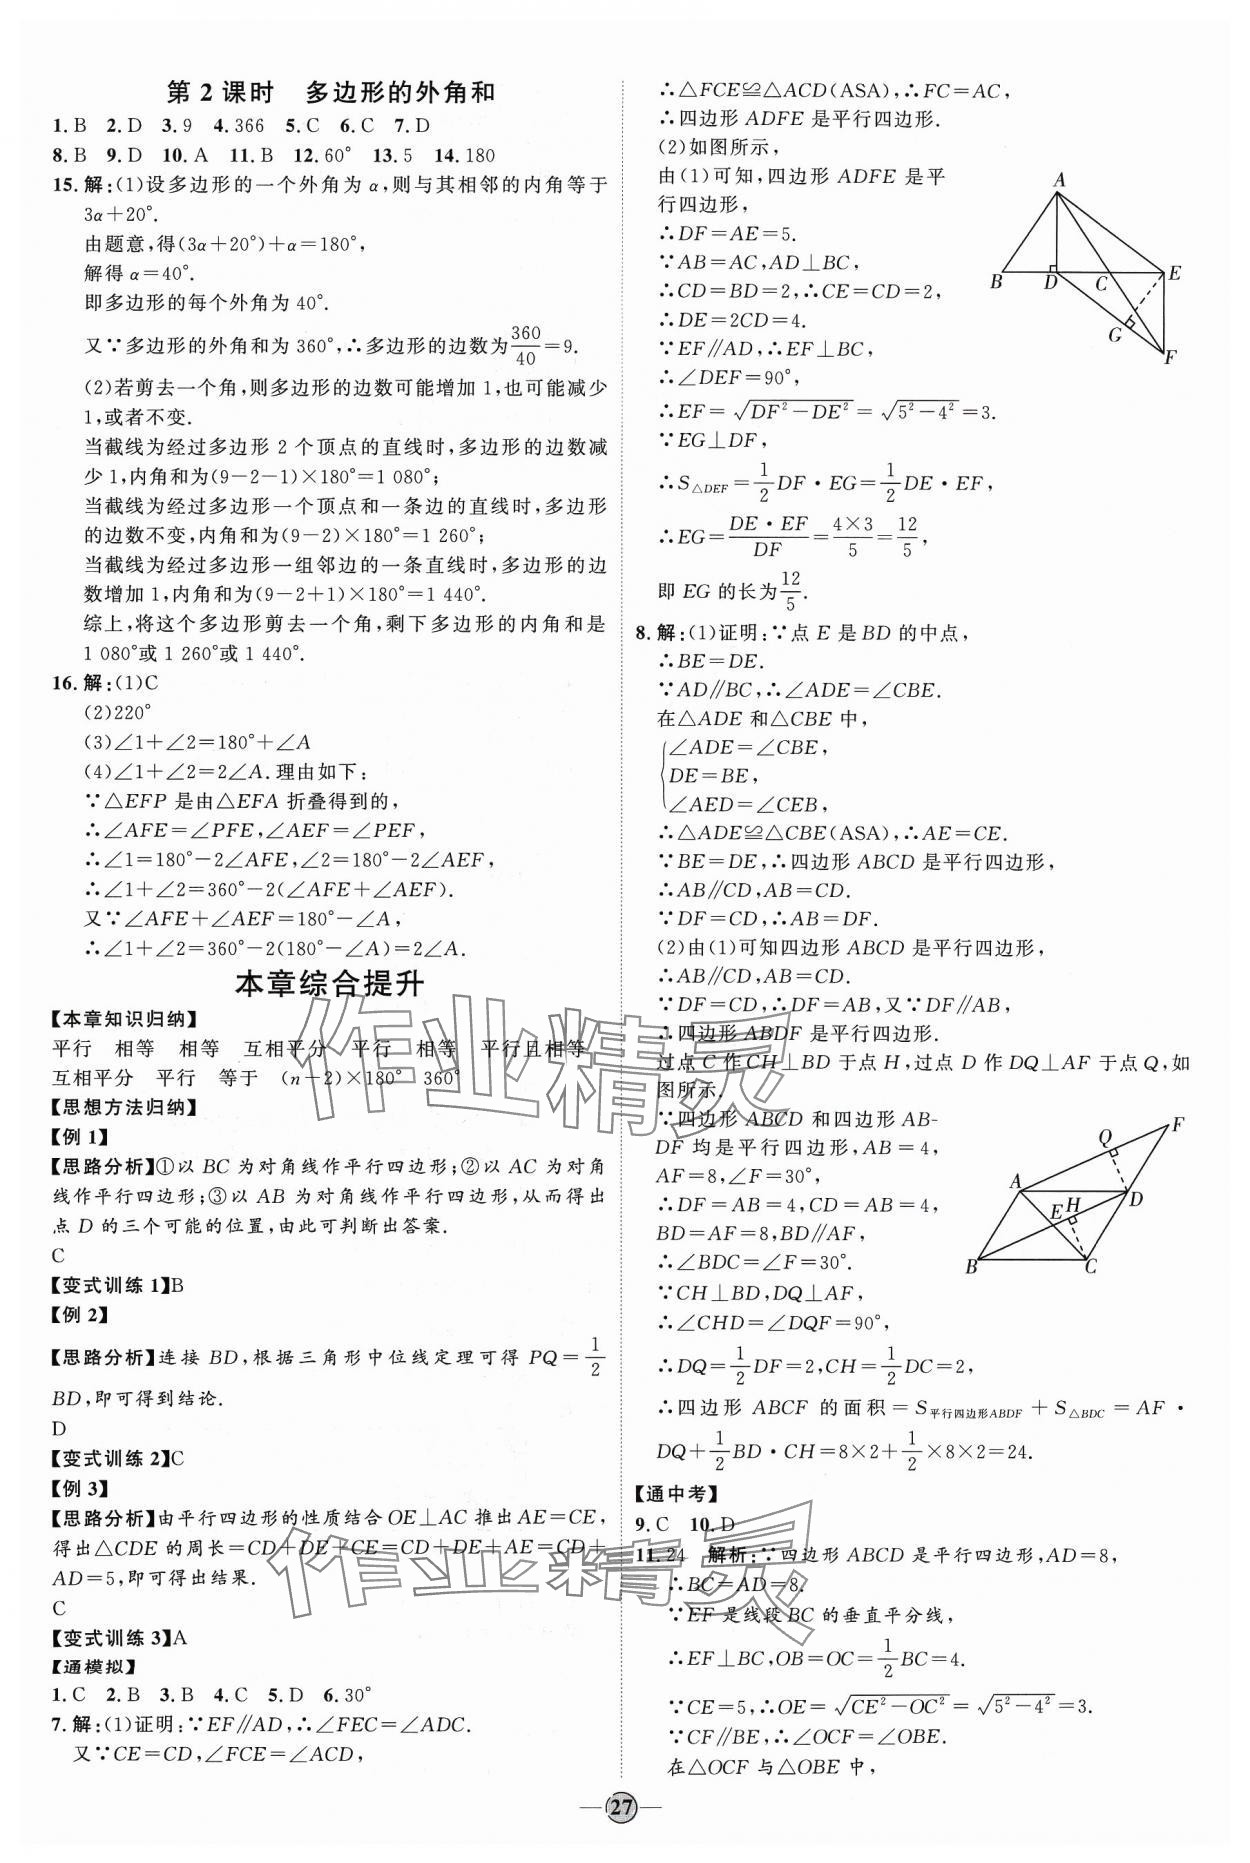 第 2 课时　多边形的外角和
1. B　2. D　3. 9　4. 366　5. C　6. C　7. D
8. B　9. D　10. A　11. B　12. 60°　13. 5　14. 180
15. 解:(1)设多边形的一个外角为 α,则与其相邻的内角等于
3α+20°.
由题意,得(3α+20°)+α=180°,
解得 α=40°.
即多边形的每个外角为 40°.
又∵多边形的外角和为 360°,∴多边形的边数为360/40=9.
(2)若剪去一个角,则多边形的边数可能增加 1,也可能减少
1,或者不变.
当截线为经过多边形 2 个顶点的直线时,多边形的边数减
少 1,内角和为(9-2-1)×180°=1 080°;
当截线为经过多边形一个顶点和一条边的直线时,多边形
的边数不变,内角和为(9-2)×180°=1 260°;
当截线为经过多边形一组邻边的一条直线时,多边形的边
数增加 1,内角和为(9-2+1)×180°=1 440°.
综上,将这个多边形剪去一个角,剩下多边形的内角和是
1 080°或 1 260°或 1 440°.
16. 解:(1)C
(2)220°
(3)∠1+∠2=180°+∠A
(4)∠1+∠2=2∠A.理由如下:
∵△EFP 是由△EFA 折叠得到的,
∴∠AFE=∠PFE,∠AEF=∠PEF,
∴∠1=180°-2∠AFE,∠2=180°-2∠AEF,
∴∠1+∠2=360°-2(∠AFE+∠AEF).
又∵∠AFE+∠AEF=180°-∠A,
∴∠1+∠2=360°-2(180°-∠A)=2∠A.
本章综合提升
【本章知识归纳】
平行　相等　相等　互相平分　平行　相等　平行且相等
互相平分　平行　等于　(n-2)×180°　360°
【思想方法归纳】
【例 1】
【思路分析】①以 BC 为对角线作平行四边形;②以 AC 为对角
线作平行四边形;③以 AB 为对角线作平行四边形,从而得出
点 D 的三个可能的位置,由此可判断出答案.
C
【变式训练 1】B
【例 2】
【思路分析】连接 BD,根据三角形中位线定理可得 PQ=1/2
BD,即可得到结论.
D
【变式训练 2】C
【例 3】
【思路分析】由平行四边形的性质结合 OE⊥AC 推出 AE=CE,
得出△CDE 的周长=CD+DE+CE=CD+DE+AE=CD+
AD=5,即可得出结果.
C
【变式训练 3】A
【通模拟】
1. C　2. B　3. B　4. C　5. D　6. 30°
7. 解:(1)证明:∵EF∥AD,∴∠FEC=∠ADC.
又∵CE=CD,∠FCE=∠ACD,
∴△FCE≌△ACD(ASA),∴FC=AC,
∴四边形 ADFE 是平行四边形.
(2)如图所示,
由(1)可知,四边形 ADFE 是平
行四边形,
∴DF=AE=5.
∵AB=AC,AD⊥BC,
∴CD=BD=2,∴CE=CD=2,
∴DE=2CD=4.
∵EF∥AD,∴EF⊥BC,
∴∠DEF=90°,
∴EF=√(DF²-DE²)=√(5²-4²)=3.
∵EG⊥DF,
∴S△DEF=1/2DF·EG=1/2DE·EF,
∴EG=DE·EF/DF=4×3/5=12/5,
即 EG 的长为12/5.
A
B
D
C
E
G
F
8. 解:(1)证明:∵点 E 是 BD 的中点,
∴BE=DE.
∵AD∥BC,∴∠ADE=∠CBE.
在△ADE 和△CBE 中,
{∠ADE=∠CBE,
DE=BE,
∠AED=∠CEB,
∴△ADE≌△CBE(ASA),∴AE=CE.
∵BE=DE,∴四边形 ABCD 是平行四边形,
∴AB∥CD,AB=CD.
∵DF=CD,∴AB=DF.
(2)由(1)可知四边形 ABCD 是平行四边形,
∴AB∥CD,AB=CD.
∵DF=CD,∴DF=AB,又∵DF∥AB,
∴四边形 ABDF 是平行四边形.
过点 C 作 CH⊥BD 于点 H,过点 D 作 DQ⊥AF 于点 Q,如
图所示.
∵四边形 ABCD 和四边形 AB-
DF 均是平行四边形,AB=4,
AF=8,∠F=30°,
∴DF=AB=4,CD=AB=4,
BD=AF=8,BD∥AF,
∴∠BDC=∠F=30°.
∵CH⊥BD,DQ⊥AF,
∴∠CHD=∠DQF=90°,
∴DQ=1/2DF=2,CH=1/2DC=2,
∴四边形 ABCF 的面积=S平行四边形ABDF+S△BDC=AF·
DQ+1/2BD·CH=8×2+1/2×8×2=24.
F
Q
A
D
E
H
B
C
【通中考】
9. C　10. D
11. 24　解析:∵四边形 ABCD 是平行四边形,AD=8,
∴BC=AD=8.
∵EF 是线段 BC 的垂直平分线,
∴EF⊥BC,OB=OC=1/2BC=4.
∵CE=5,∴OE=√(CE²-OC²)=√(5²-4²)=3.
∵CF∥BE,∴∠OCF=∠OBE.
在△OCF 与△OBE 中,
27
作业精灵
作业精灵